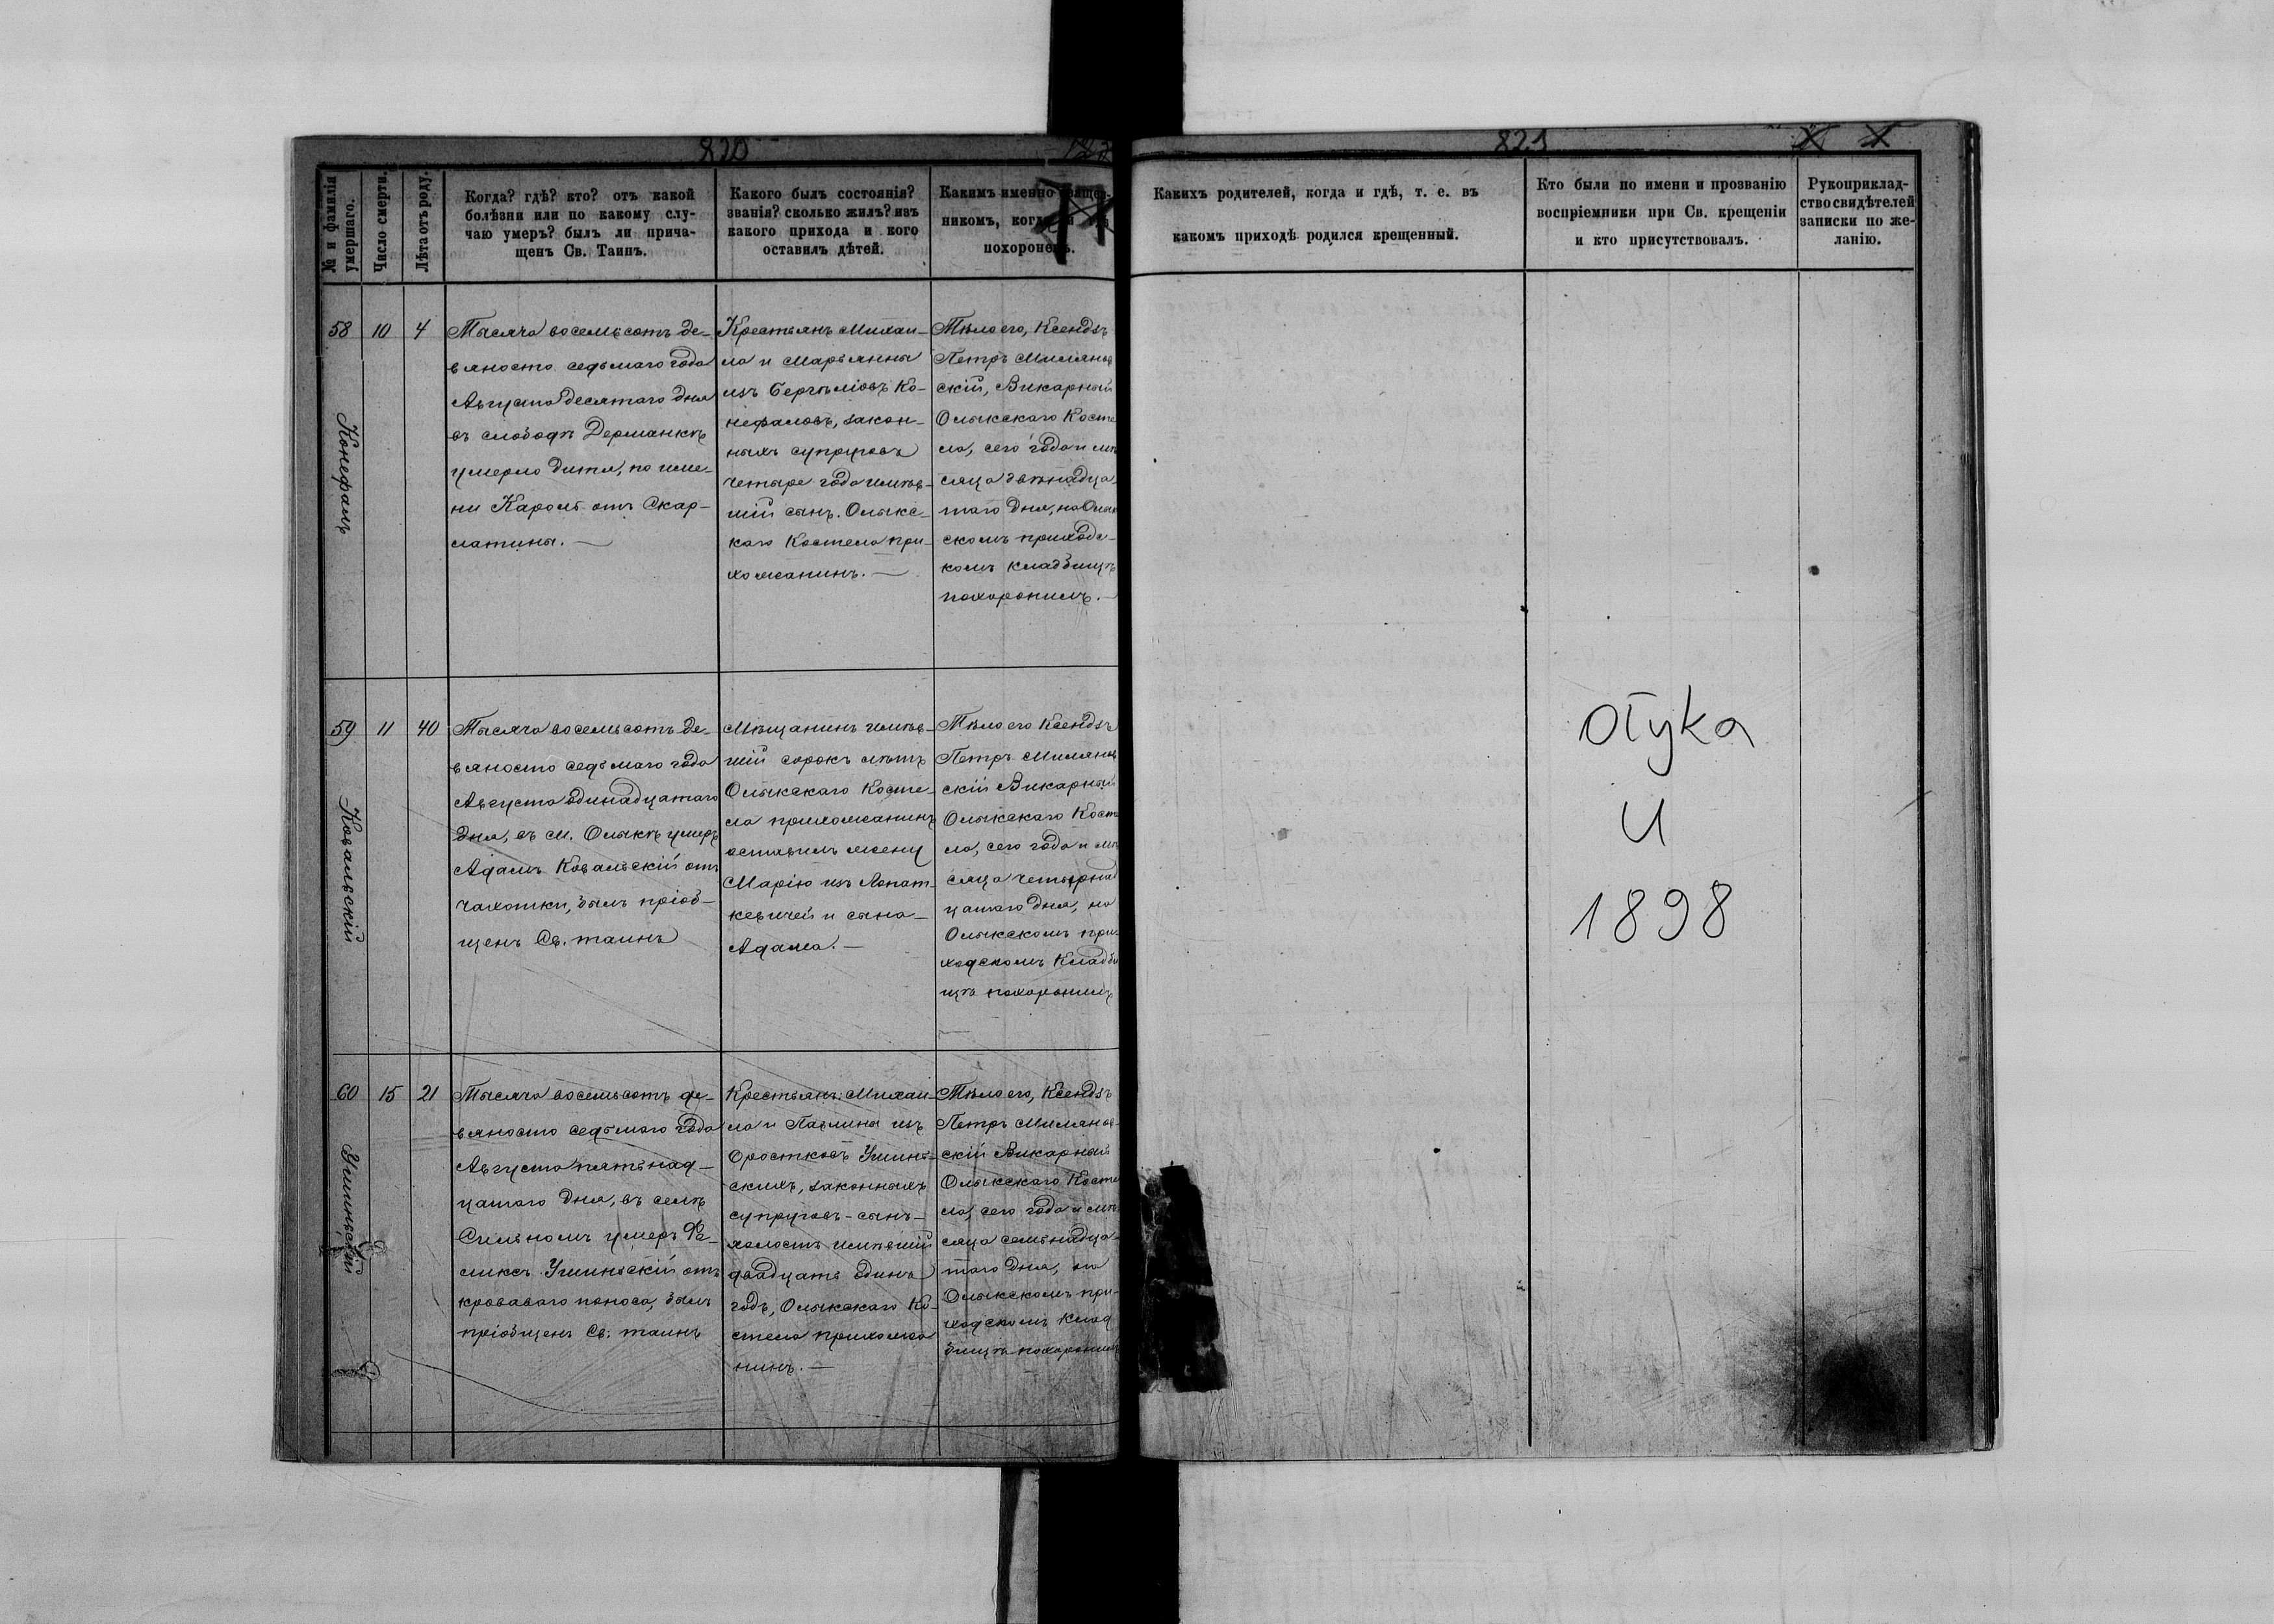 820
№ и фамилія умершаго.
Число смерти.
Лѣта отъ роду.
Когда? гдѣ? кто? отъ какой
болѣзни или по какому слу-
чаю умеръ? былъ ли прича-
щенъ Св. Таинъ.
Какого былъ состоянія?
званія? сколько жилъ? изъ
какого прихода и кого
оставилъ дѣтей.
Какимъ именно
никомъ,
похороненъ.
58
Конефалъ
10
4
Тысяча восемьсотъ де-
вяносто седьмаго года
Августа десятаго дня
въ слободѣ Дерманкѣ
умерло дитя, по име-
ни Кароль отъ Скар-
латины. —
Крестьянъ Михаи-
ла и Марьянны
изъ Конефаловъ, закон-
ныхъ супруговъ
четыре года имѣв-
шій сынъ. Олыкс-
каго Костела при-
хожанинъ. —
Тѣло его, Ксендзъ
Петръ
скій, Викарный
Олыкскаго Косте
ла, сего года и мѣ
сяца двѣнадца
таго дня, на Олык
скомъ приходс-
комъ кладбищѣ
похоронилъ. —
59
Ковальскій
11
40
Тысяча восемьсотъ де-
вяносто седьмаго года
Августа одинадцатаго
дня, въ м. Олыкѣ умеръ
Адамъ Ковальскій отъ
чахотки, былъ пріоб-
щенъ Св. таинъ
Мѣщанинъ имѣв-
шій сорокъ лѣтъ
Олыкскаго Косте-
ла прихожанинъ
оставилъ жену
Марію изъ Лопат-
кевичей и сына —
Адама. —
Тѣло его Ксендзъ
Петръ
скій Викарный
Олыкскаго Косте
ла, сего года и мѣ
сяца четырнад
цатаго дня, на
Олыкскомъ при-
ходскомъ Кладби
щѣ похоронилъ
60
Ушинскій
15
21
Тысяча восемьсотъ де-
вяносто седьмаго года
Августа пятьнад-
цатаго дня, въ селѣ
Сильномъ умеръ Фе-
ликсъ Ушинскій отъ
кроваваго поноса, былъ
пріобщенъ Св. таинъ
Крестьянъ: Михаи-
ла и Павлины изъ
Оростковъ Ушин-
скихъ, законныхъ
супруговъ - сынъ -
холостъ имѣвшій
двадцать одинъ
годъ, Олыкскаго Ко-
стела прихожа
нинъ. —
Тѣло его, Ксендзъ
Петръ
скій Викарный
Олыкскаго Косте
ла, сего года и мѣ
сяца семьнадца-
таго дня, на
Олыкскомъ при-
ходскомъ Клад
бищѣ похоронилъ
821
Какихъ родителей, когда и гдѣ, т. е. въ
какомъ приходѣ родился крещенный.
Кто были по имени и прозванію
воспріемники при Св. крещеніи
и кто присутствовалъ.
Рукоприклад-
ство свидѣтелей
записки по же-
ланію.
U
1898